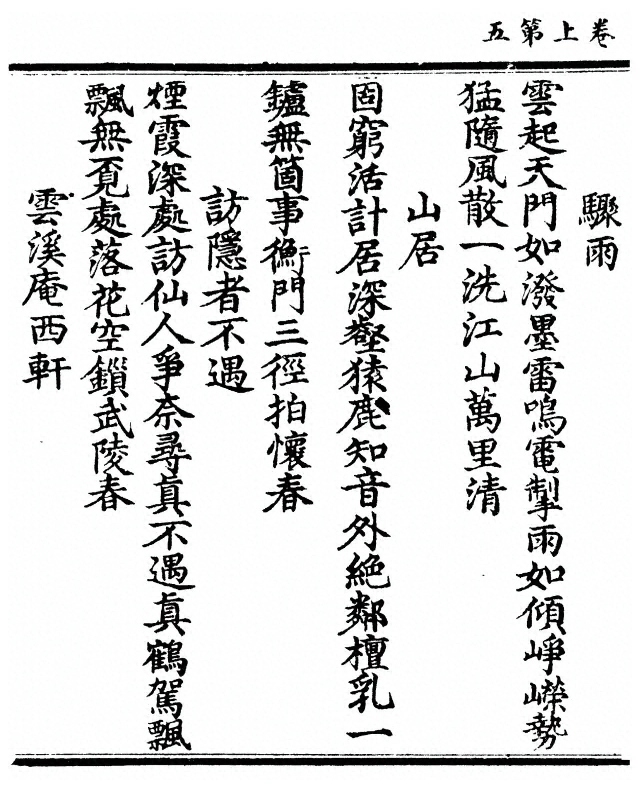 卷上第五
驟雨
雲起天門如潑墨雷鳴電掣雨如傾崢嶸勢
猛隨風散一洗江山萬里清
山居
固窮活計居深壑猿鹿知音外絶鄰檀乳一
鑪無箇事衡門三徑拍懷春
訪隱者不遇
煙霞深處訪仙人爭奈尋真不遇真鶴駕飄
飄無覓處落花空鎖武陵春
雲溪庵西軒